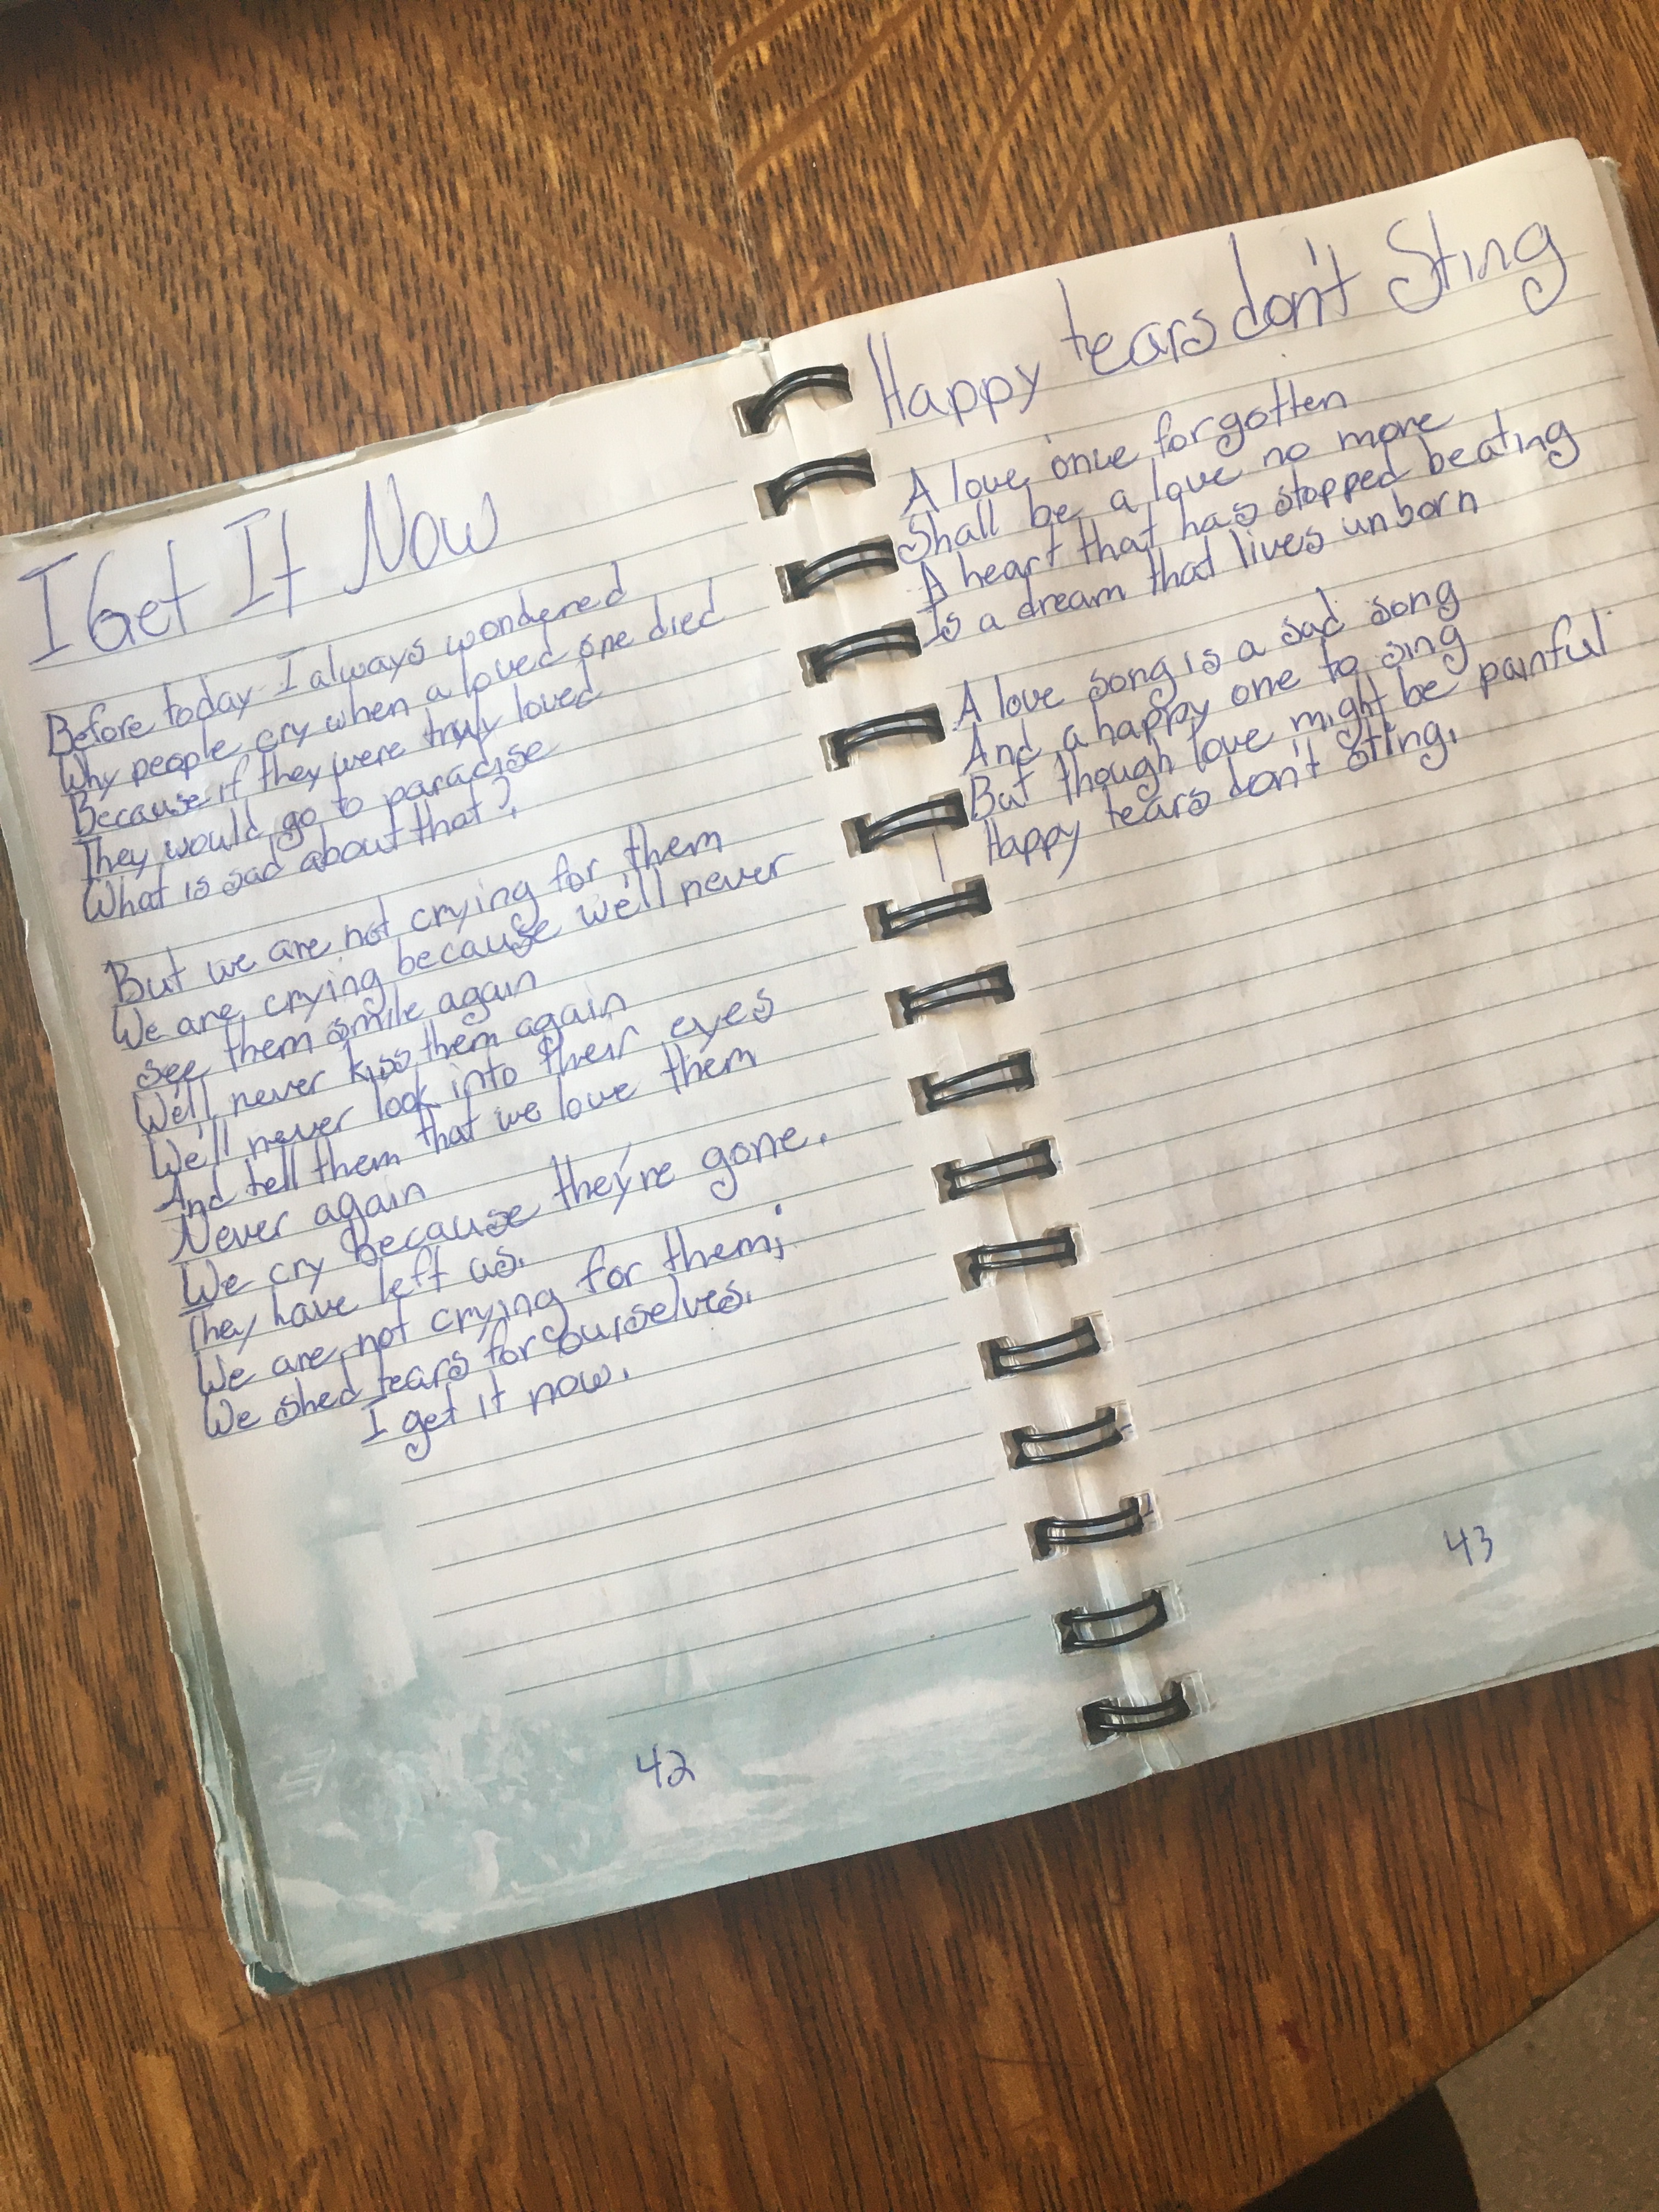 I Get It Now
Before today I always wondered
Why people cry when a loved one died
Because if they were truly loved
They would go to paradise
What is sad about that?
But we are not crying for them
We are crying because we'll never
see them smile again
We'll never kiss them again
We'll never look into their eyes
And tell them that we love them
Never again
We cry because they're gone.
They have left us.
We are not crying for them;
We shed tears for ourselves.
I get it now.
42
Happy tears don't Sting
A love once forgotten
Shall be a love no more
A heart that has stopped beating
Is a dream that lives unborn
A love song is a sad song
And a happy one to sing
But though love might be painful
Happy tears don't sting.
43